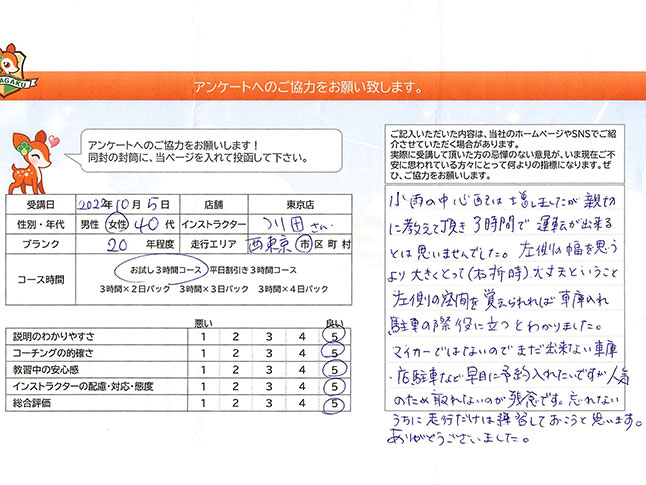 AGAKU
アンケートへのご協力をお願い致します。
アンケートへのご協力をお願いします！
同封の封筒に、当ページを入れて投函して下さい。
受講日 2022年10月5日 店舗 東京店
性別・年代 男性 女性 40代 インストラクター 川田さん
ブランク 20 年程度 走行エリア 西東京 市区町村
コース時間 お試し3時間コース 平日割引き3時間コース
3時間×2日パック 3時間×3日パック 3時間×4日パック
悪い 良い
説明のわかりやすさ 1 2 3 4 5
コーチングの的確さ 1 2 3 4 5
教習中の安心感 1 2 3 4 5
インストラクターの配慮・対応・態度 1 2 3 4 5
総合評価 1 2 3 4 5
ご記入いただいた内容は、当社のホームページやSNSでご紹
介させていただく場合があります。
実際に受講して頂いた方の忌憚のない意見が、いま現在ご不
安に思われている方々にとって何よりの指標になります。ぜ
ひ、ご協力をお願いします。
小雨の中 心配では増しましたが親切
に教えて頂き3時間で運転が出来る
とは思いませんでした。左側の幅を思う
より大きくとって(右折時)大丈夫ということ
左側の空間を覚えられれば車庫入れ
駐車の際役に立つとわかりました。
マイカーではないのでまだ出来ない車庫
・店駐車など早目に予約入れたいですが人気
のため取れないのが残念です。忘れない
うちに走行だけは練習しておこうと思います。
ありがとうございました。